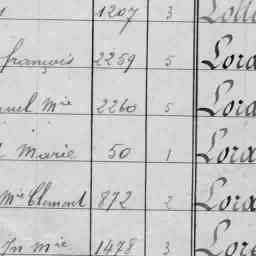 1207 3
françois 2259 5 Lora
uel Mie 2260 5 Lora
Marie 50 1 Lora
Mie Clement 872 2 Lora
Jn Mie 1478 3 Lor